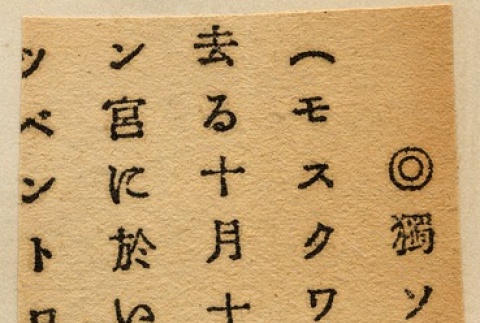 ◎獨ソ
(モスクワ
去る十月十
ン宮に於い
ツベントロ